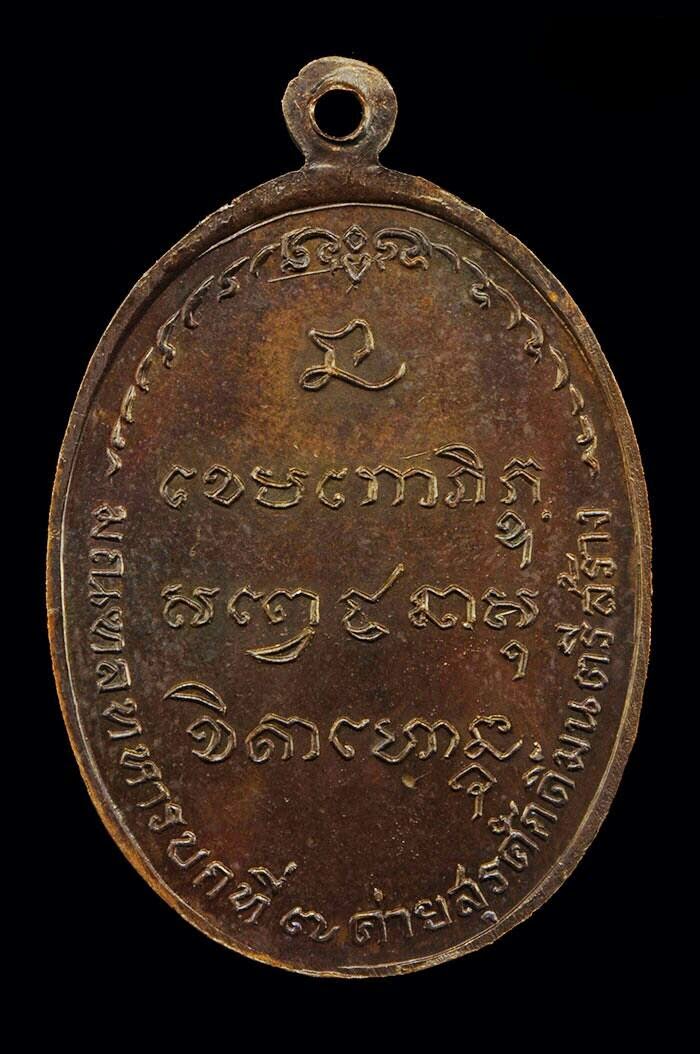 ᨡᩮᨾᨠᩮᩣᨽᩥᨠ᩠ᨡᩩ
ᩈᨻᩮᩈᨲᩣᩈᩩ
ᨡᩥᨲᩣᩉᩮᩣᨶ᩠ᨲᩩ
มณฑลทหารบกที่ ๗ ค่ายสุรศักดิ์มนตรีสร้าง